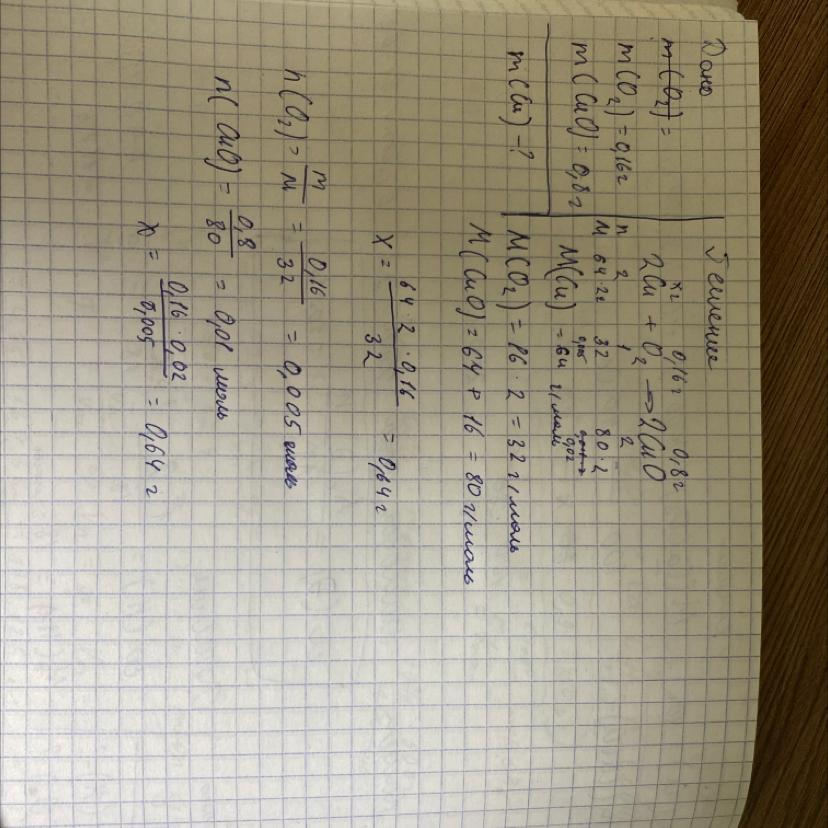 Дано
m(O₂) =
m(O₂) = 0,16 г
m(CuO) = 0,8 г
m(Cu) – ?
Решение
x г 0,16 г 0,8 г
2Cu + O₂ → 2CuO
n 2 1 2
M 64·2 32 80·2
M(Cu) = 64 г/моль
M(O₂) = 16 · 2 = 32 г/моль
M(CuO) = 64 + 16 = 80 г/моль
X = 64 · 2 · 0,16 / 32 = 0,64 г
n(O₂) = m/M = 0,16/32 = 0,005 моль
n(CuO) = 0,8/80 = 0,01 моль
X = 0,16 · 0,02 / 0,005 = 0,64 г